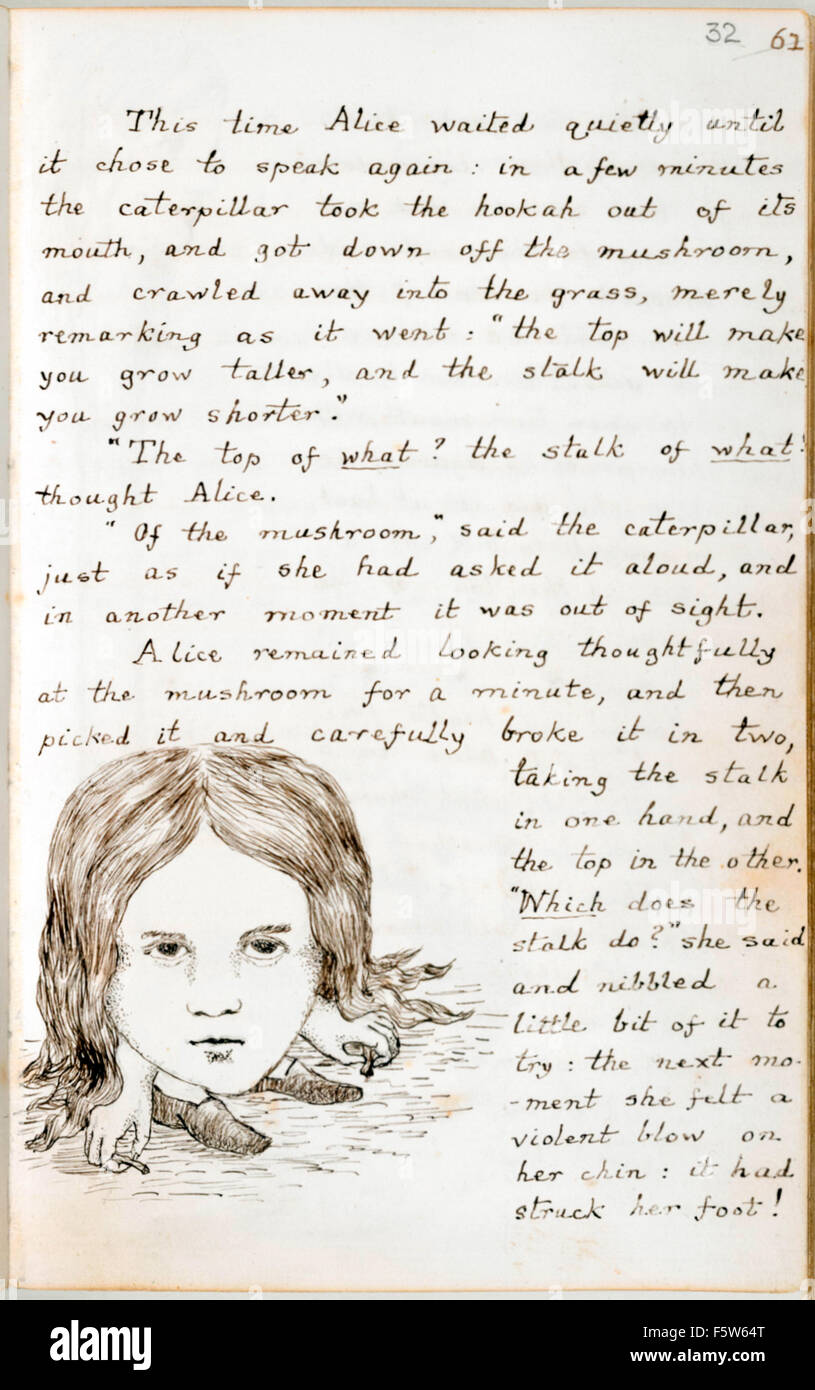 32 61
This time Alice waited quietly until
it chose to speak again: in a few minutes
the caterpillar took the hookah out of its
mouth, and got down off the mushroom,
and crawled away into the grass, merely
remarking as it went: "the top will make
you grow taller, and the stalk will make
you grow shorter."
"The top of what? the stalk of what?
thought Alice.
"Of the mushroom," said the caterpillar,
just as if she had asked it aloud, and
in another moment it was out of sight.
Alice remained looking thoughtfully
at the mushroom for a minute, and then
picked it and carefully broke it in two,
taking the stalk
in one hand, and
the top in the other.
"Which does the
stalk do?" she said
and nibbled a
little bit of it to
try: the next mo-
-ment she felt a
violent blow on
her chin: it had
struck her foot!
alamy
alamy
alamy
alamy
alamy
Image ID: F5W64T
www.alamy.com